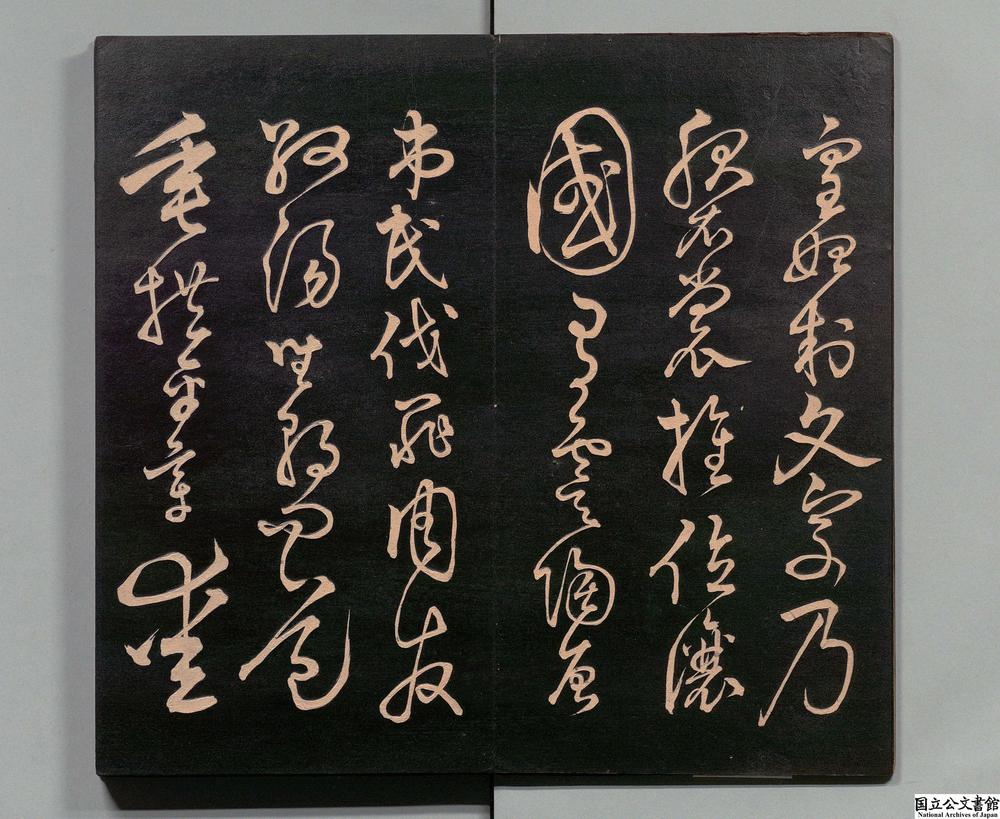 皇始制文字乃
服衣裳推位讓
國有虞陶唐
弔民伐罪周發
殷湯坐朝問道
垂拱平章愛
国立公文書館
National Archives of Japan